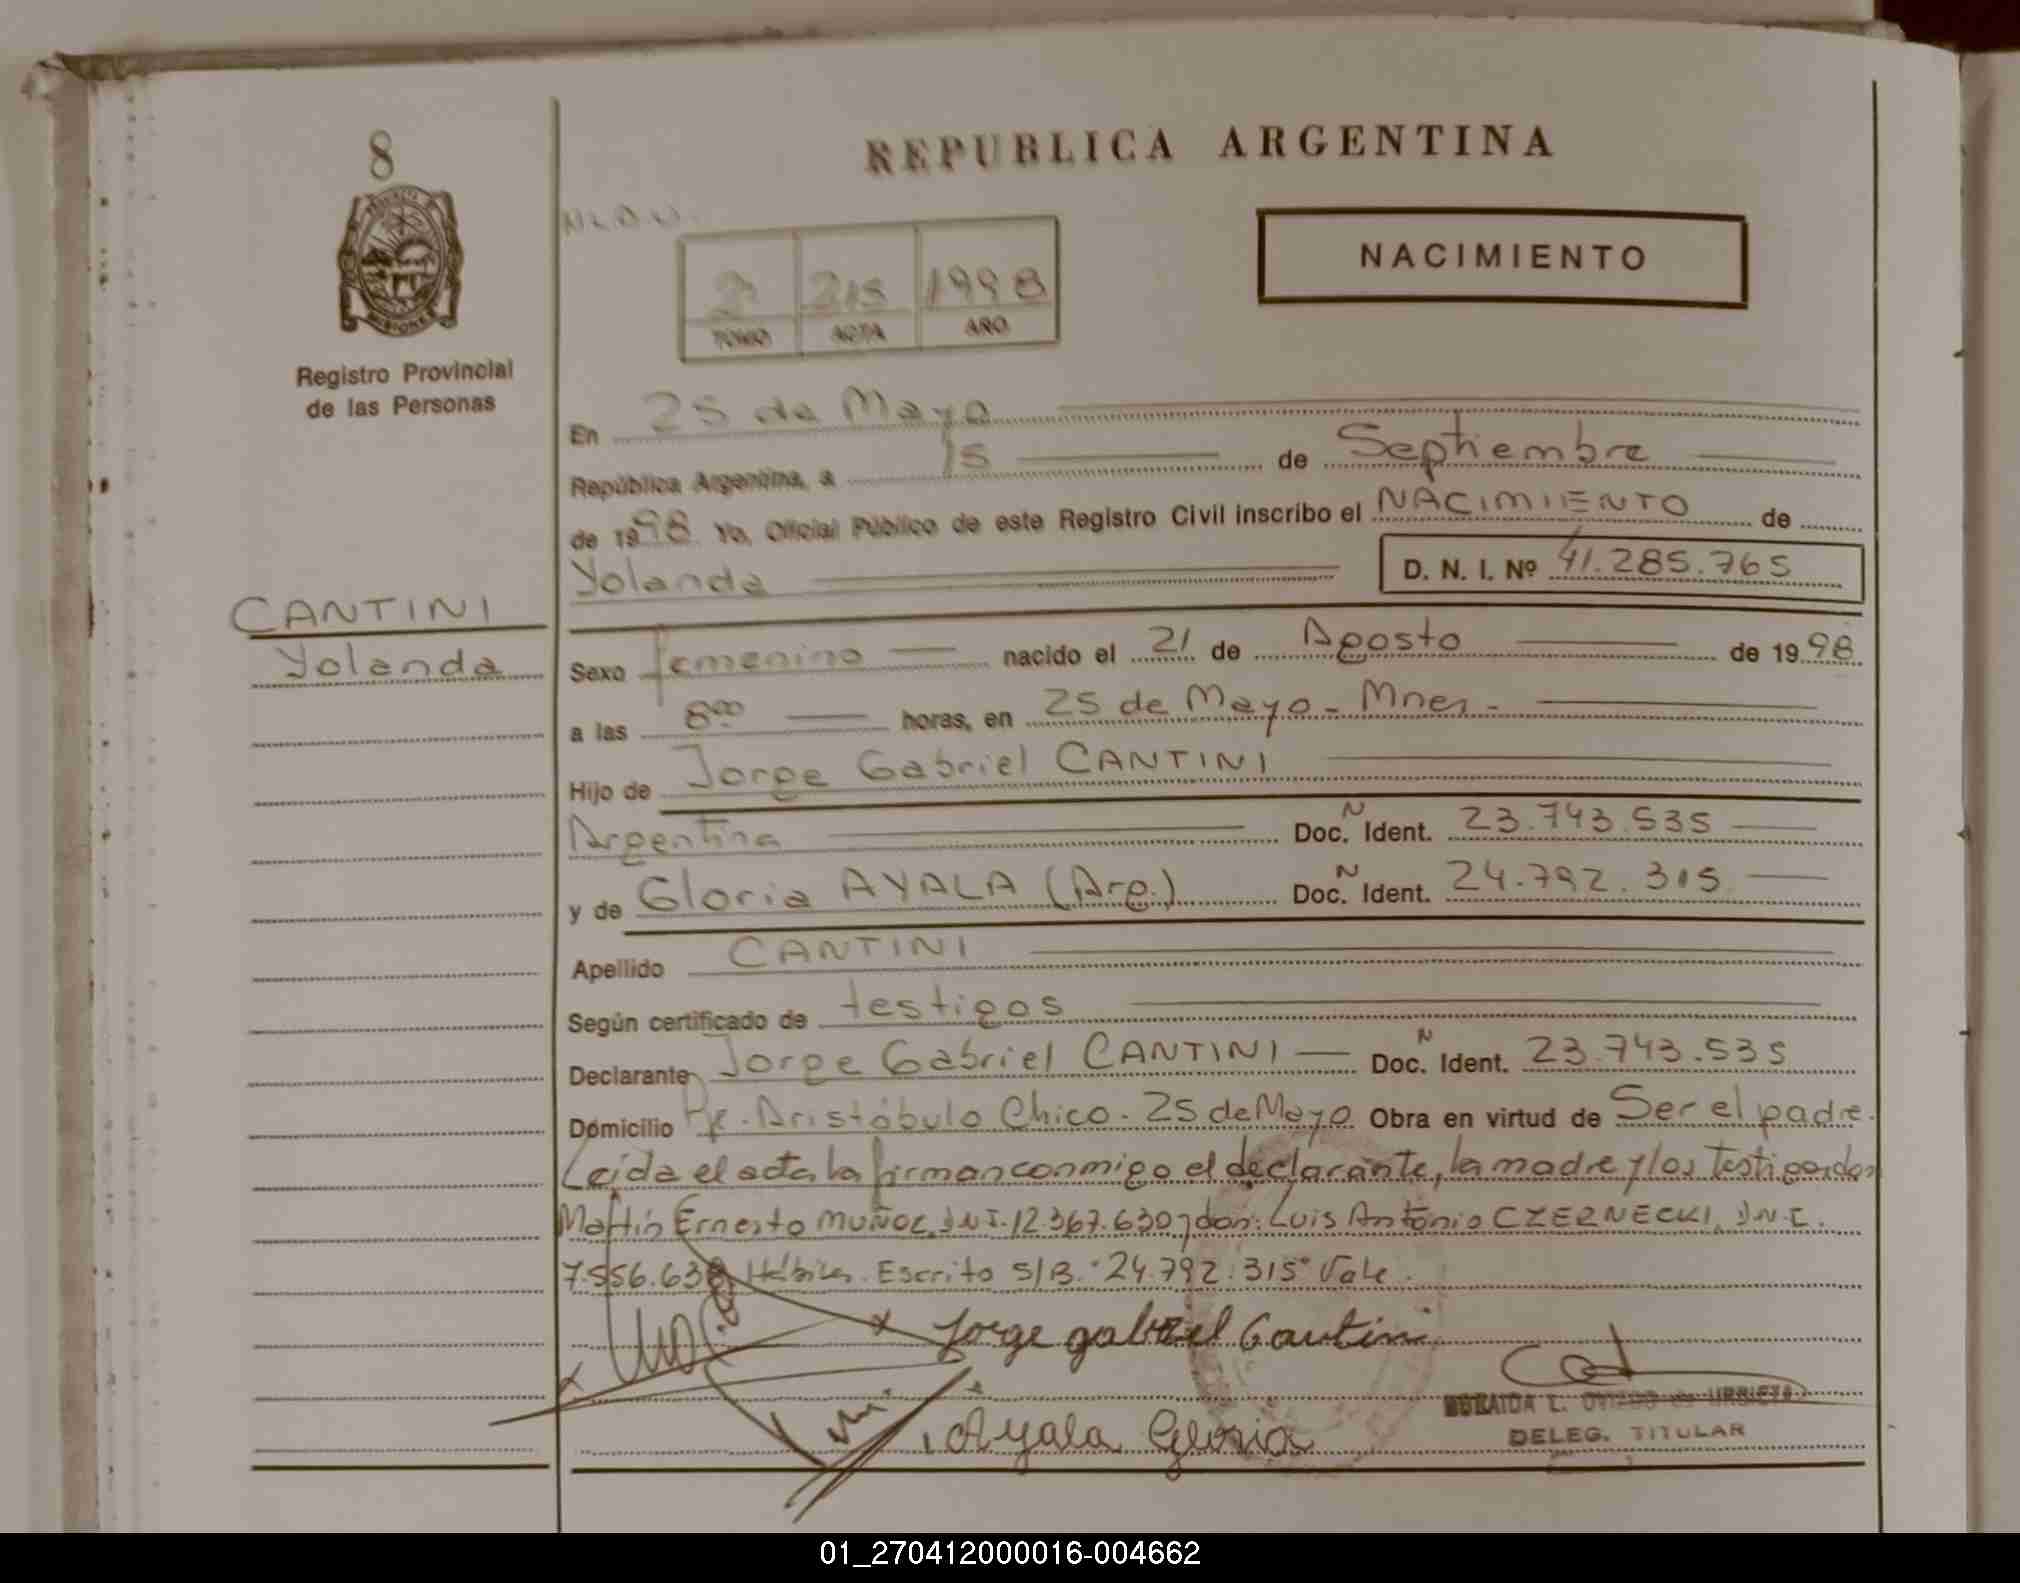 8
REPUBLICA ARGENTINA
NACIMIENTO
2 215 1998
TOMO ACTA AÑO
Registro Provincial
de las Personas
En 25 de Mayo
República Argentina, a 15 de Septiembre
de 1998 Yo, Oficial Público de este Registro Civil inscribo el NACIMIENTO de
Yolanda D. N. I. Nº 41.285.765
CANTINI
Yolanda
Sexo femenino nacido el 21 de Agosto de 1998
a las 800 horas, en 25 de Mayo - Mnes -
Hijo de Jorge Gabriel CANTINI
Argentina Doc. N Ident. 23.743.535
y de Gloria AYALA (Arg.) Doc. N Ident. 24.792.315
Apellido CANTINI
Según certificado de testigos
Declarante Jorge Gabriel CANTINI Doc. N Ident. 23.743.535
Domicilio Aristóbulo Chico - 25 de Mayo Obra en virtud de Ser el padre.
Leida el acta la firman conmigo el declarante, la madre y los testigos don
Martín Ernesto MUÑOZ D.N.I. 12.367.630 y don: Luis Antonio CZERNECKI, D.N.I.
7.556.638 Hábiles. Escrito S/B. "24.792.315" Vale.
Jorge gabriel Cantini
L. OVIEDO de URBIETA
DELEG. TITULAR
Ayala Gloria
01_270412000016-004662